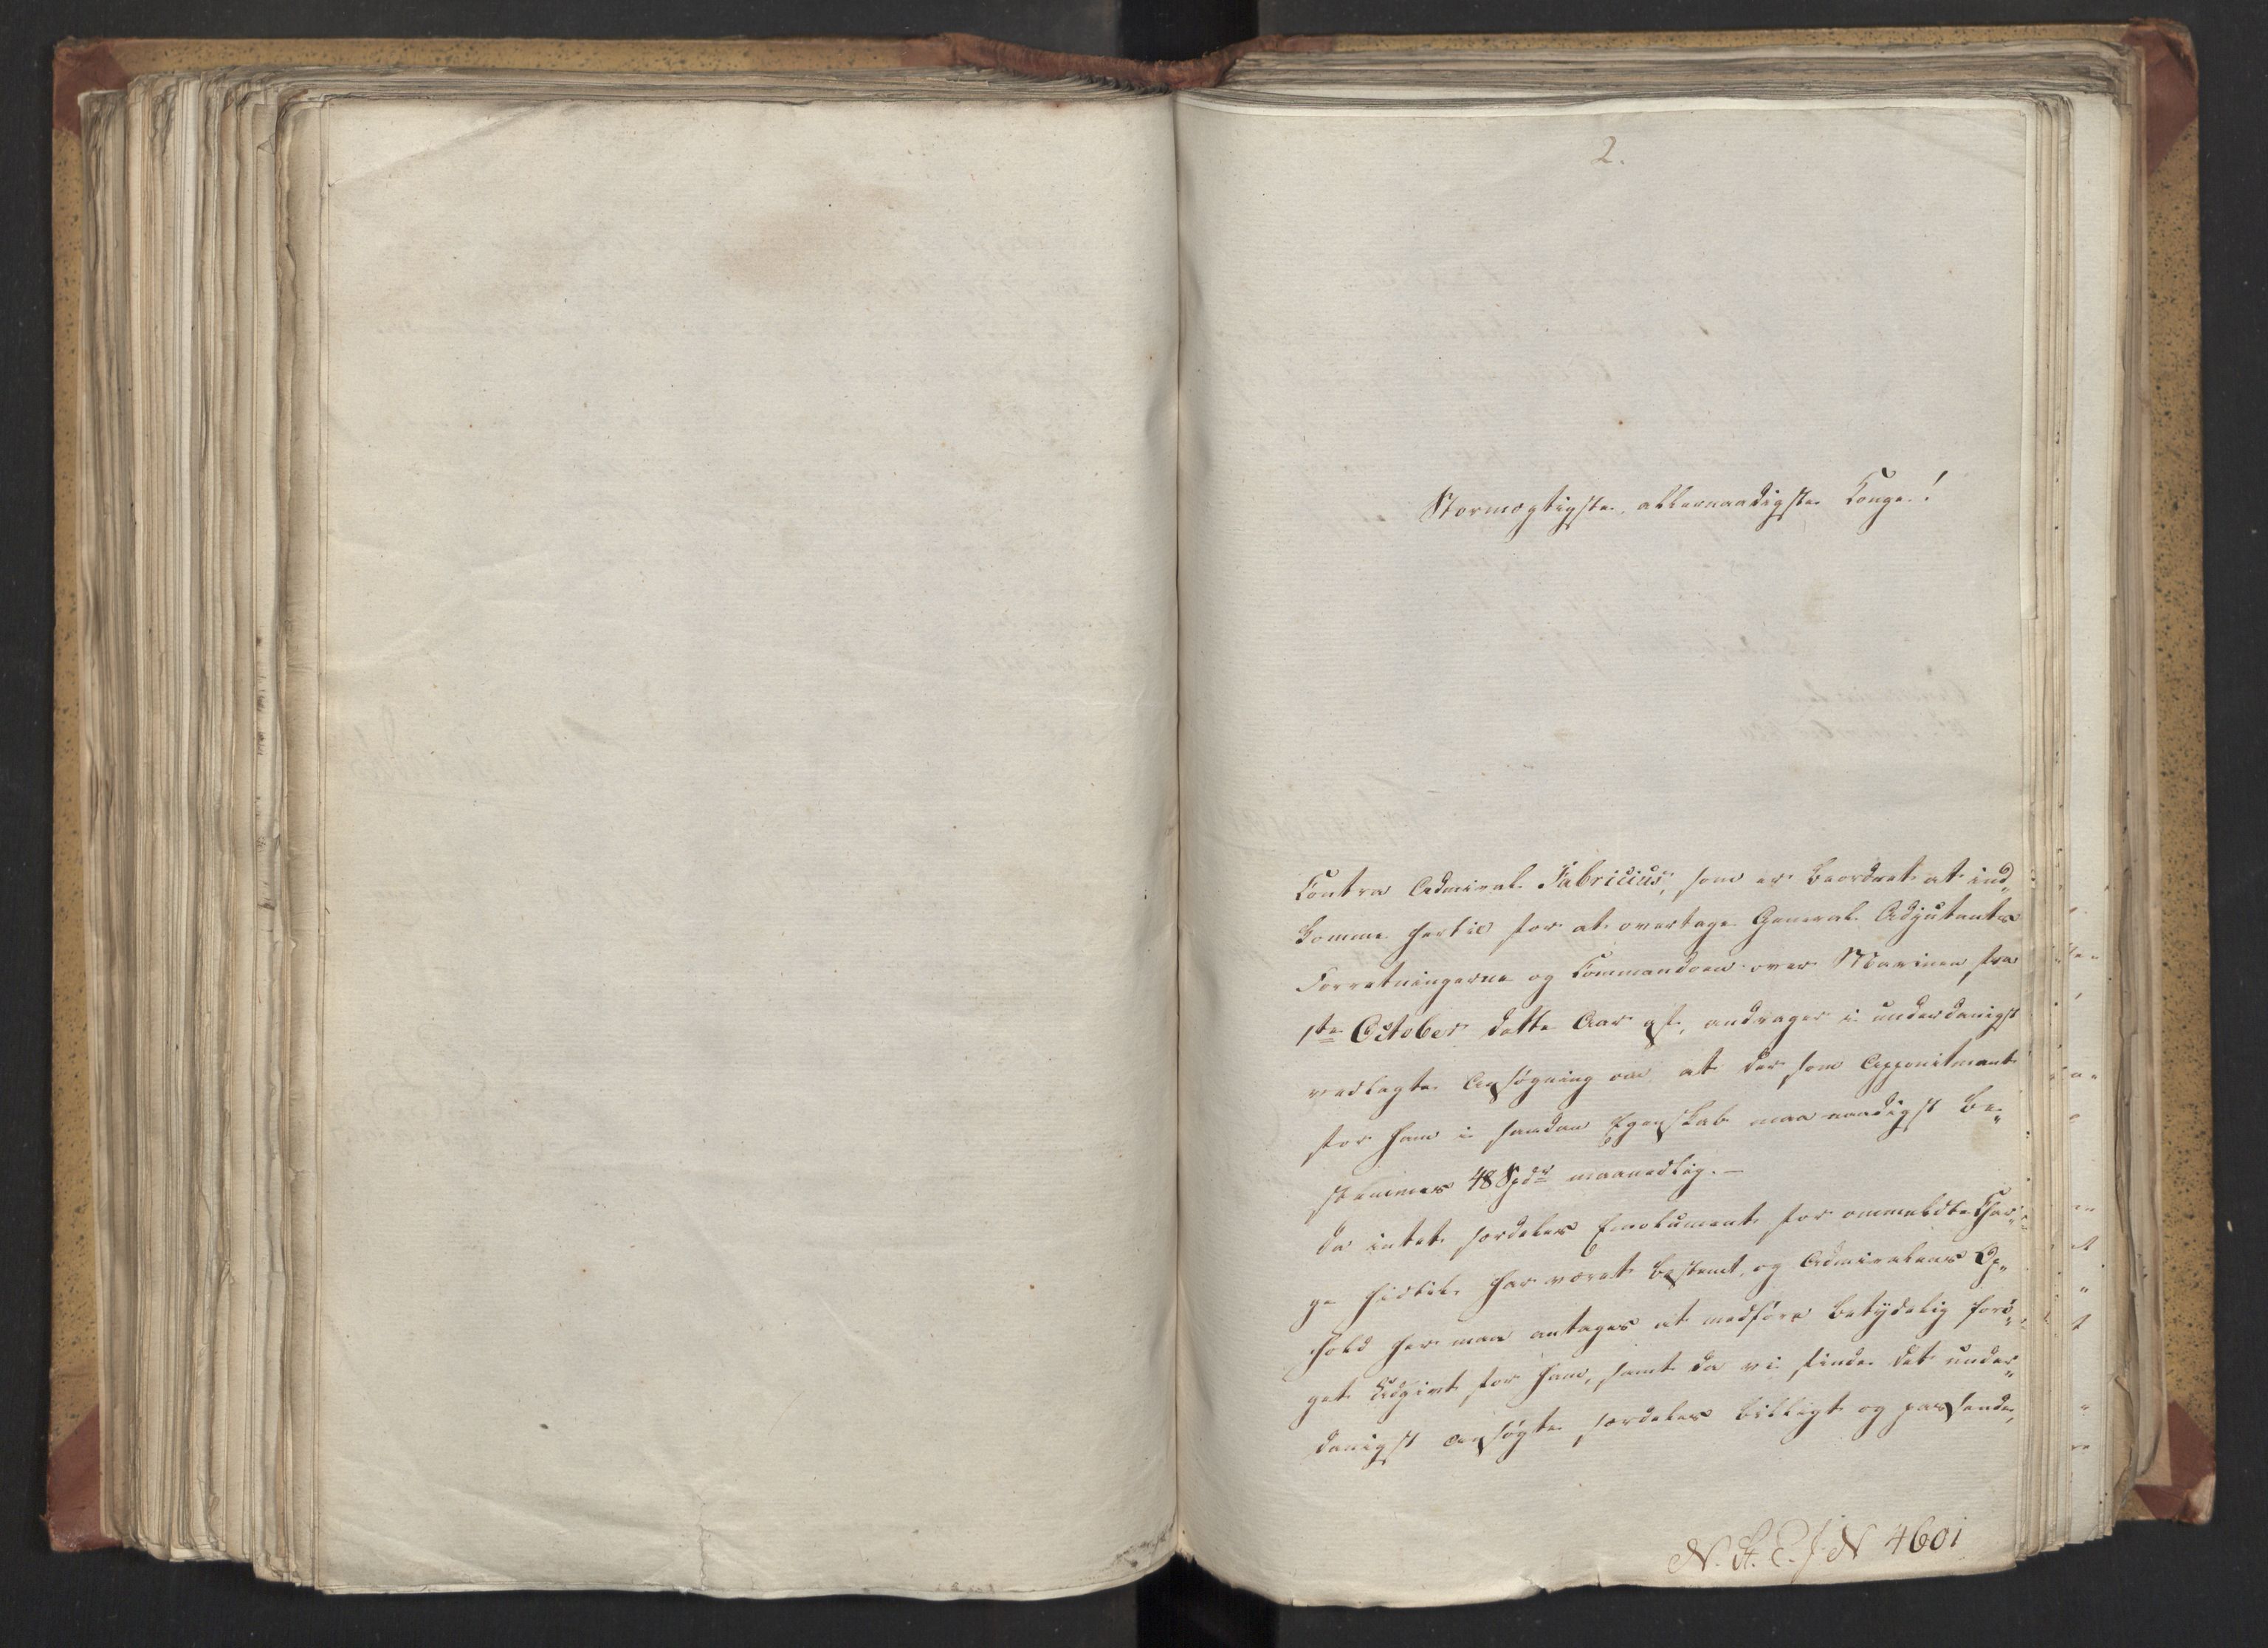 2.
Stormægtigste, allernaadigste Konge!
Contra Admiral Fabricius, som er beordret at ind„
komme hertil for at overtage General Adjutants
Forretningerne og Commandoen over Marinen fra
1ste October dette Aar af, andrager i underdanigst
vedlagte Ansøgning om, at der som Appointment
for ham i saadan Egenskab maa naadigst be„
stemmes 48 Spdr maanedlig. —
Da intet særdeles Emolument for ommeldte Char„
ge hidtil har været bestemt, og Admiralens Op„
hold her maa antages at medføre betydelig forø„
get Udgivt for ham, samt da vi finde det under„
danigst ansøgte særdeles billigt og passende,
N. St. E. J. N 4601